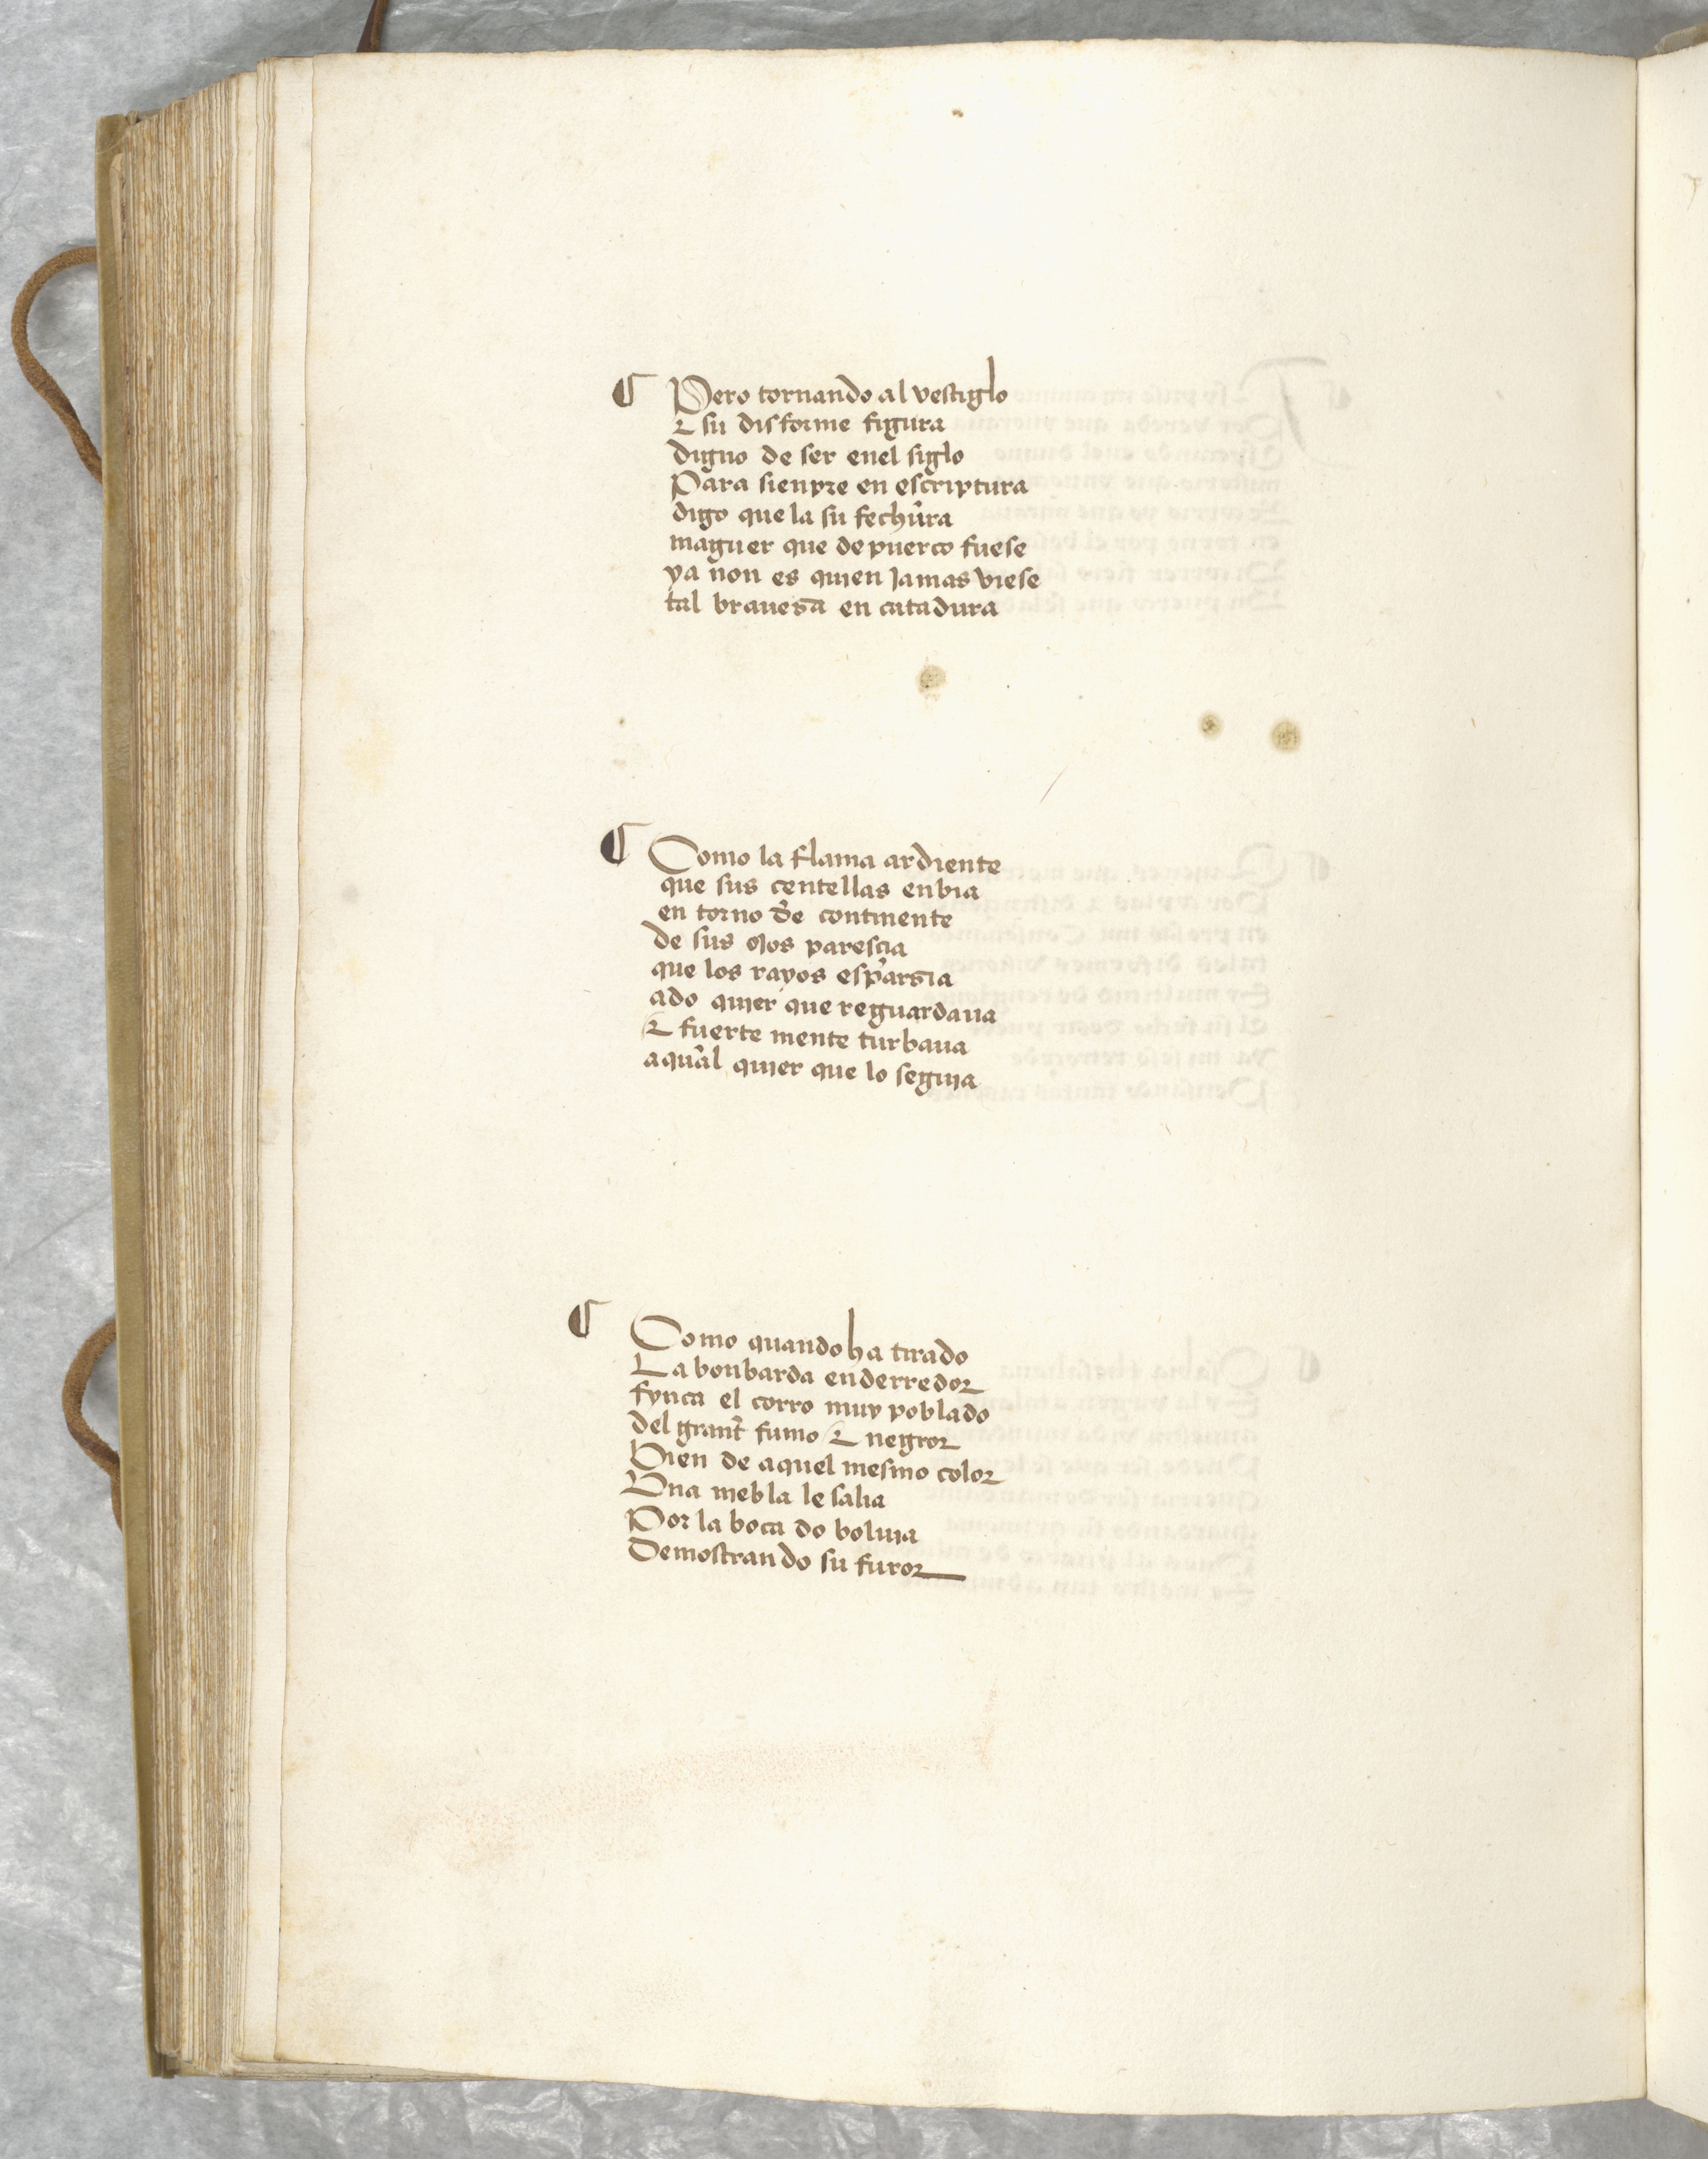 ¶ Pero tornando al vestiglo
& su disforme figura
digno de ser enel siglo
Para sienpre en escriptura
digo que la su fechura
maguer que de puerco fuese
ya non es quien Jamas viese
tal brauesa en catadura
¶ Como la flama ardiente
que sus centellas enbia
en torno de continente
de sus ojos parescia
que los rayos esparsia
ado quier que reguardaua
& fuerte mente turbaua
aqual quier que lo seguja
¶ Como quando ha tirado
La bonbarda enderredor
fynca el corro muy poblado
del grant fumo & negror
Bien de aquel mesmo color
Una niebla le salia
Por la boca do boluja
Demostrando su furor